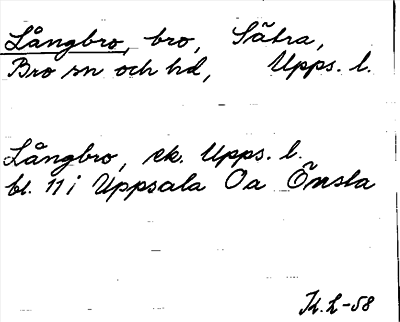 Långbro, bro, Sätra,
Bro sn och hd, Upps. l.
Långbro, ek. Upps. l.
bl. 11 i Uppsala Oa Önsta
Kt. L-58